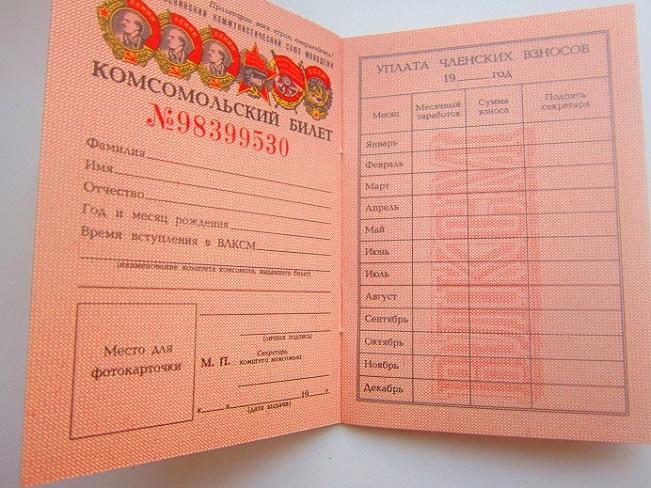 Пролетарии всех стран, соединяйтесь!
коммунистический союз молодежи
ЛЕНИН ЛЕНИН ЛЕНИН СССР
КОМСОМОЛЬСКИЙ БИЛЕТ
№98399530
Фамилия
Имя
Отчество
Год и месяц рождения
Время вступления в ВЛКСМ
(наименование комитета комсомола, выдавшего билет)
(личная подпись)
Место для
фотокарточки
М. П.
Секретарь
комитета комсомола
« » 19 г.
(дата выдачи)
УПЛАТА ЧЛЕНСКИХ ВЗНОСОВ
19 ГОД
Месяц Месячный заработок Сумма взноса Подпись секретаря
Январь
Февраль
Март
Апрель
Май
Июнь
Июль
Август
Сентябрь
Октябрь
Ноябрь
Декабрь
ВЛКСМ